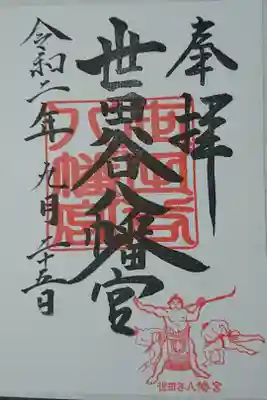 奉拝
世田谷八幡宮
令和二年九月二十五日
世田谷八幡宮
世田谷八幡宮